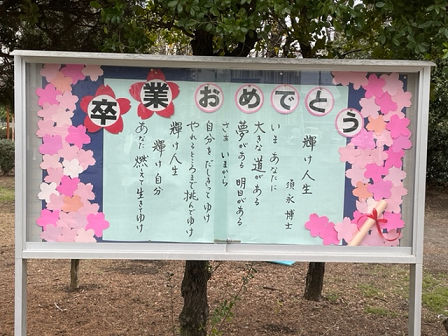 卒業おめでとう
輝け人生
須永博士
いま あなたに
大きな道がある
夢がある 明日がある
さぁ いまから
自分をだしきってゆけ
やれるところまで挑んでゆけ
輝け人生
輝け自分
あなた 燃えて生きゆけ